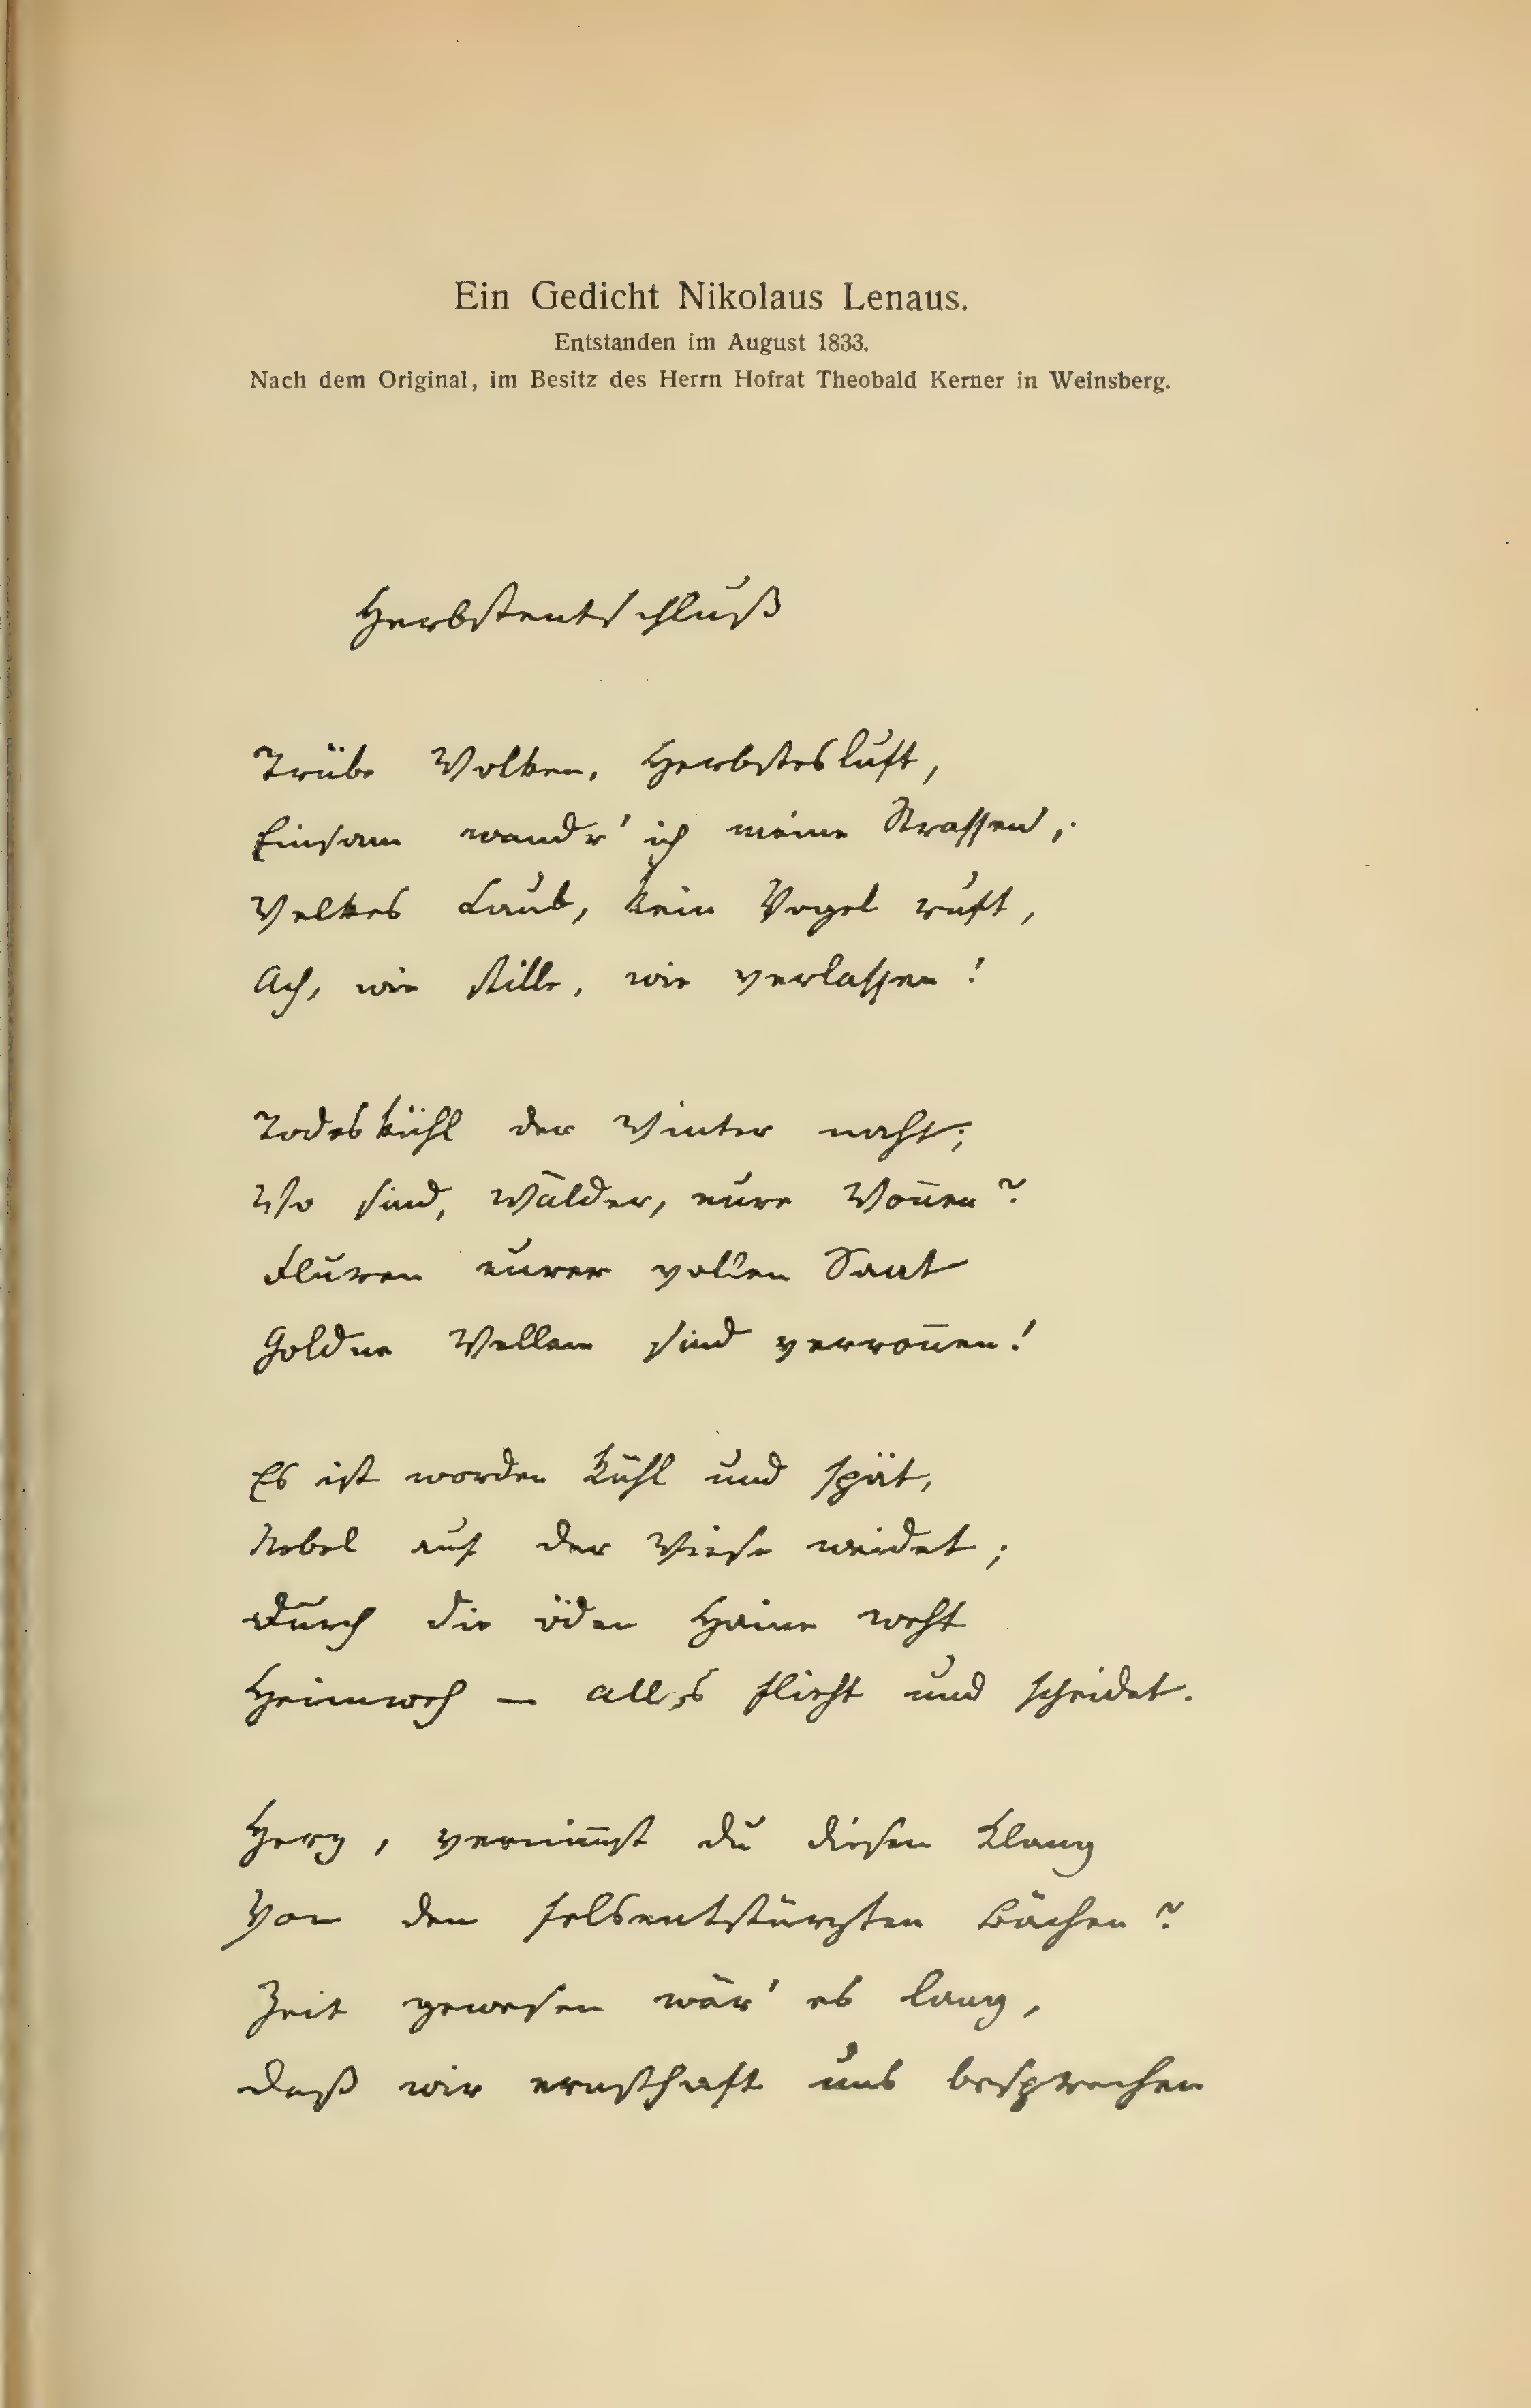 Ein Gedicht Nikolaus Lenaus.
Entstanden im August 1833.
Nach dem Original, im Besitz des Herrn Hofrat Theobald Kerner in Weinsberg.
Herbstentschluß
Trübe Wolken, Herbstesluft,
Einsam wandr' ich meine Strassen,
Welkes Laub, kein Vogel ruft,
Ach, wie stille, wie verlassen!
Todeskühl der Winter naht;
Wo sind, Wälder, eure Won̄en?
Fluren eurer vollen Saat
Goldne Wellen sind verron̄en!
Es ist worden kühl und spät,
Nebel auf der Wiese weidet;
Durch die öden Haine weht
Heimweh — alles flieht und scheidet.
Herz, vernim̄st du diesen Klang
Von den felsentstürzten Bächen?
Zeit gewesen wär' es lang,
Daß wir ernsthaft uns besprechen